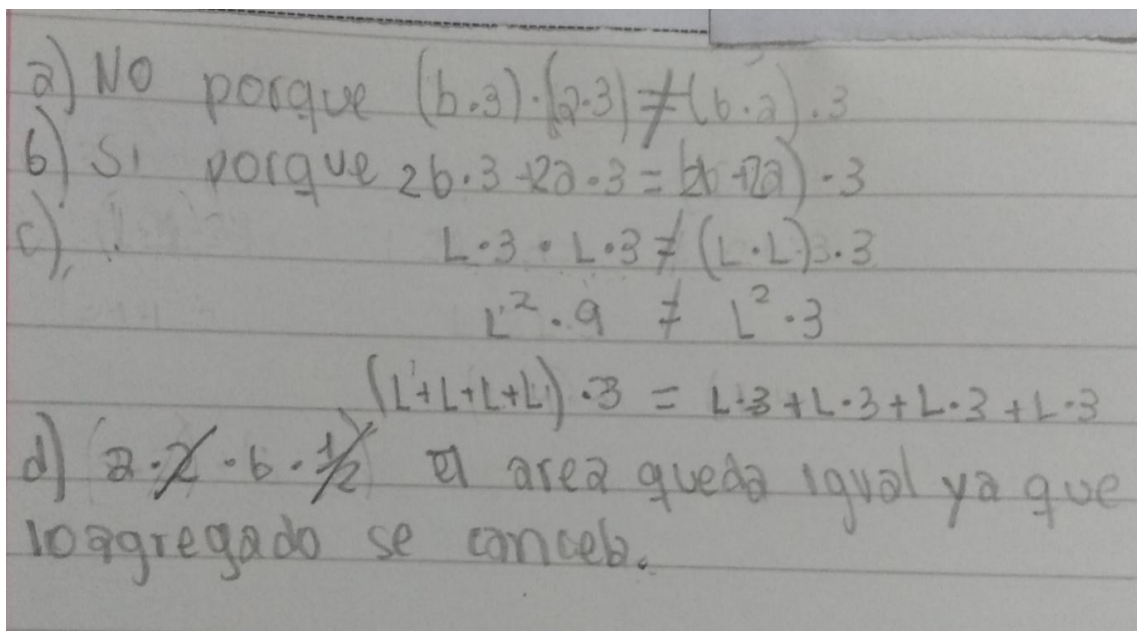 a) No porque (b.3).(a.3)≠(b.a).3
b) Si porque 2b.3+2a.3=(2b+2a).3
c) L.3.L.3≠(L.L).3
L².9 ≠ L².3
(L+L+L+L).3 = L.3+L.3+L.3+L.3
d) (a.2.b.1/2) el area queda igual ya que
lo agregado se cancela.